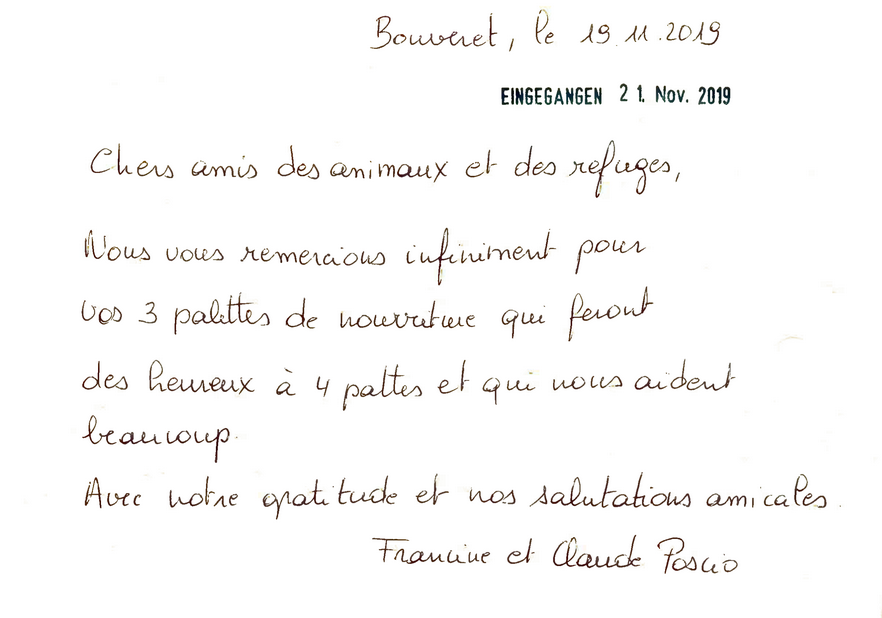 Bouveret, le 19.11.2019
EINGEGANGEN 21. Nov. 2019
Chers amis des animaux et des refuges,
Nous vous remercions infiniment pour
vos 3 palettes de nourriture qui feront
des heureux à 4 pattes et qui nous aident
beaucoup.
Avec notre gratitude et nos salutations amicales.
Francine et Claude Poscio